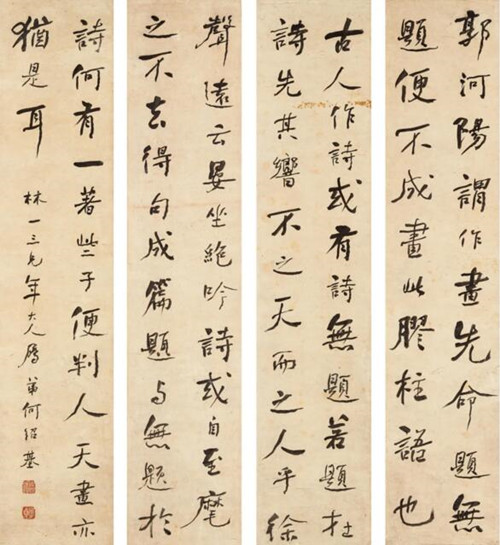 郭河陽謂作畫先命題無
題便不成畫此膠柱語也
古人作詩或有詩無題若題在
詩先其響不之天而之人乎徐
聲遠云晏坐絶吟詩或自至麾
之不去得句成篇題与無題於
詩何有一著些子便判人天畫亦
猶是耳
林一三兄年大人屬 弟何紹基